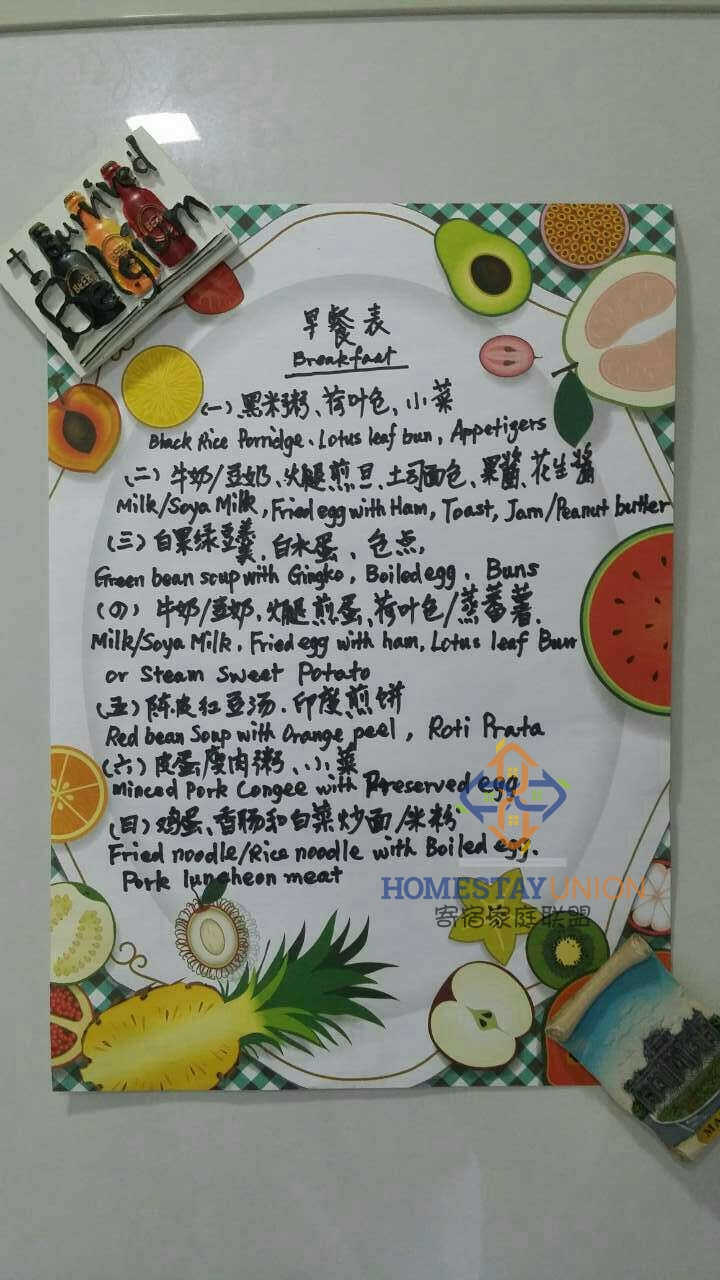 早餐表
Breakfast
(一) 黑米粥、荷叶包、小菜
Black Rice Porridge、Lotus leaf bun, Appetigers
(二) 牛奶/豆奶、火腿煎旦、土司面包、果醬、花生醬
Milk/Soya Milk, Fried egg with Ham, Toast, Jam/Peanut butter
(三) 白果绿豆羹、白水蛋、包点,
Green bean soup with Gingko, Boiled egg, Buns
(四) 牛奶/豆奶、火腿煎蛋、荷叶包/蒸蕃薯.
Milk/Soya Milk, Fried egg with ham, Lotus leaf Bun
or Steam Sweet Potato
(五) 陈皮红豆汤、印度煎饼
Red bean Soup with Orange peel, Roti Prata
(六) 皮蛋瘦肉粥、小菜
Minced Pork Congee with Preserved egg
(日) 鸡蛋、香肠和白菜炒面/米粉
Fried noodle/Rice noodle with Boiled egg.
Pork luncheon meat
HOMESTAY UNION
寄宿家庭联盟
BEER
BEER
BEER